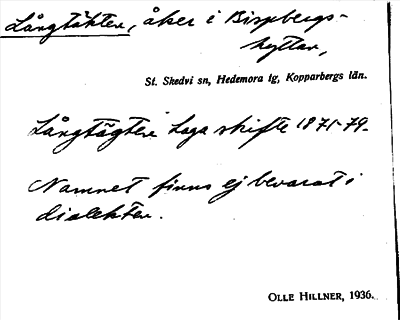 Långtäkten, åker i Bispbergs-
hyttan,
St. Skedvi sn, Hedemora tg, Kopparbergs län.
Långtägten Laga skifte 1871-79.
Namnet finns ej bevarat i
dialekten.
OLLE HILLNER, 1936.